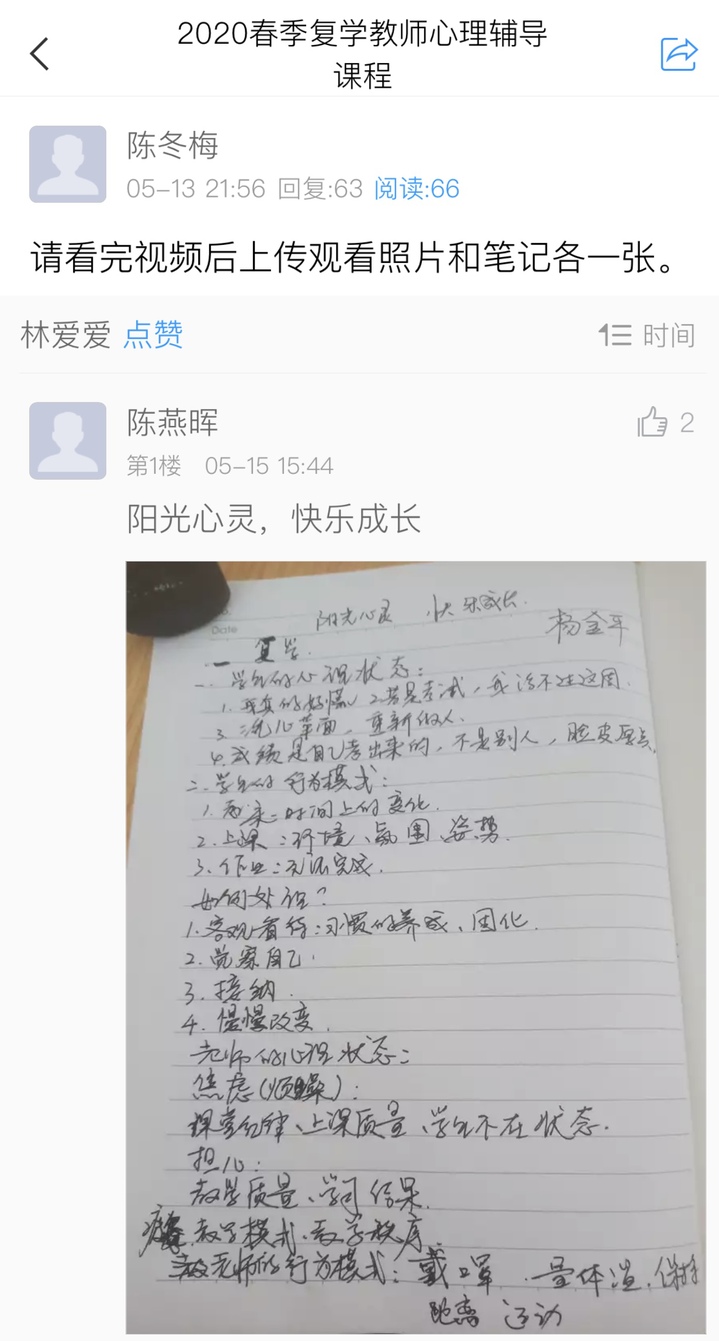 2020春季复学教师心理辅导
课程
陈冬梅
05-13 21:56 回复:63 阅读:66
请看完视频后上传观看照片和笔记各一张。
林爱爱 点赞
时间
陈燕晖
2
第1楼 05-15 15:44
阳光心灵，快乐成长
Date
阳光心灵 快乐成长.
杨金平
一 复学.
一. 学生的心理状态：
1. 我真的好慌 2. 若是考试，我活不过这周.
3. 洗心革面，重新做人.
4. 成绩是自己考出来的，不是别人，脸皮厚点.
二. 学生的行为模式：
1. 起床：时间上的变化.
2. 上课：环境、氛围、姿势.
3. 作业：无法完成.
如何处理？
1. 客观看待：习惯的养成、固化.
2. 觉察自己.
3. 接纳.
4. 慢慢改变.
老师的心理状态：
焦虑(烦躁)：
课堂纪律、上课质量、学生不在状态.
担心：
教学质量、学习结果.
教学模式、教学秩序.
老师的行为模式：戴口罩、量体温、保持
距离 运动